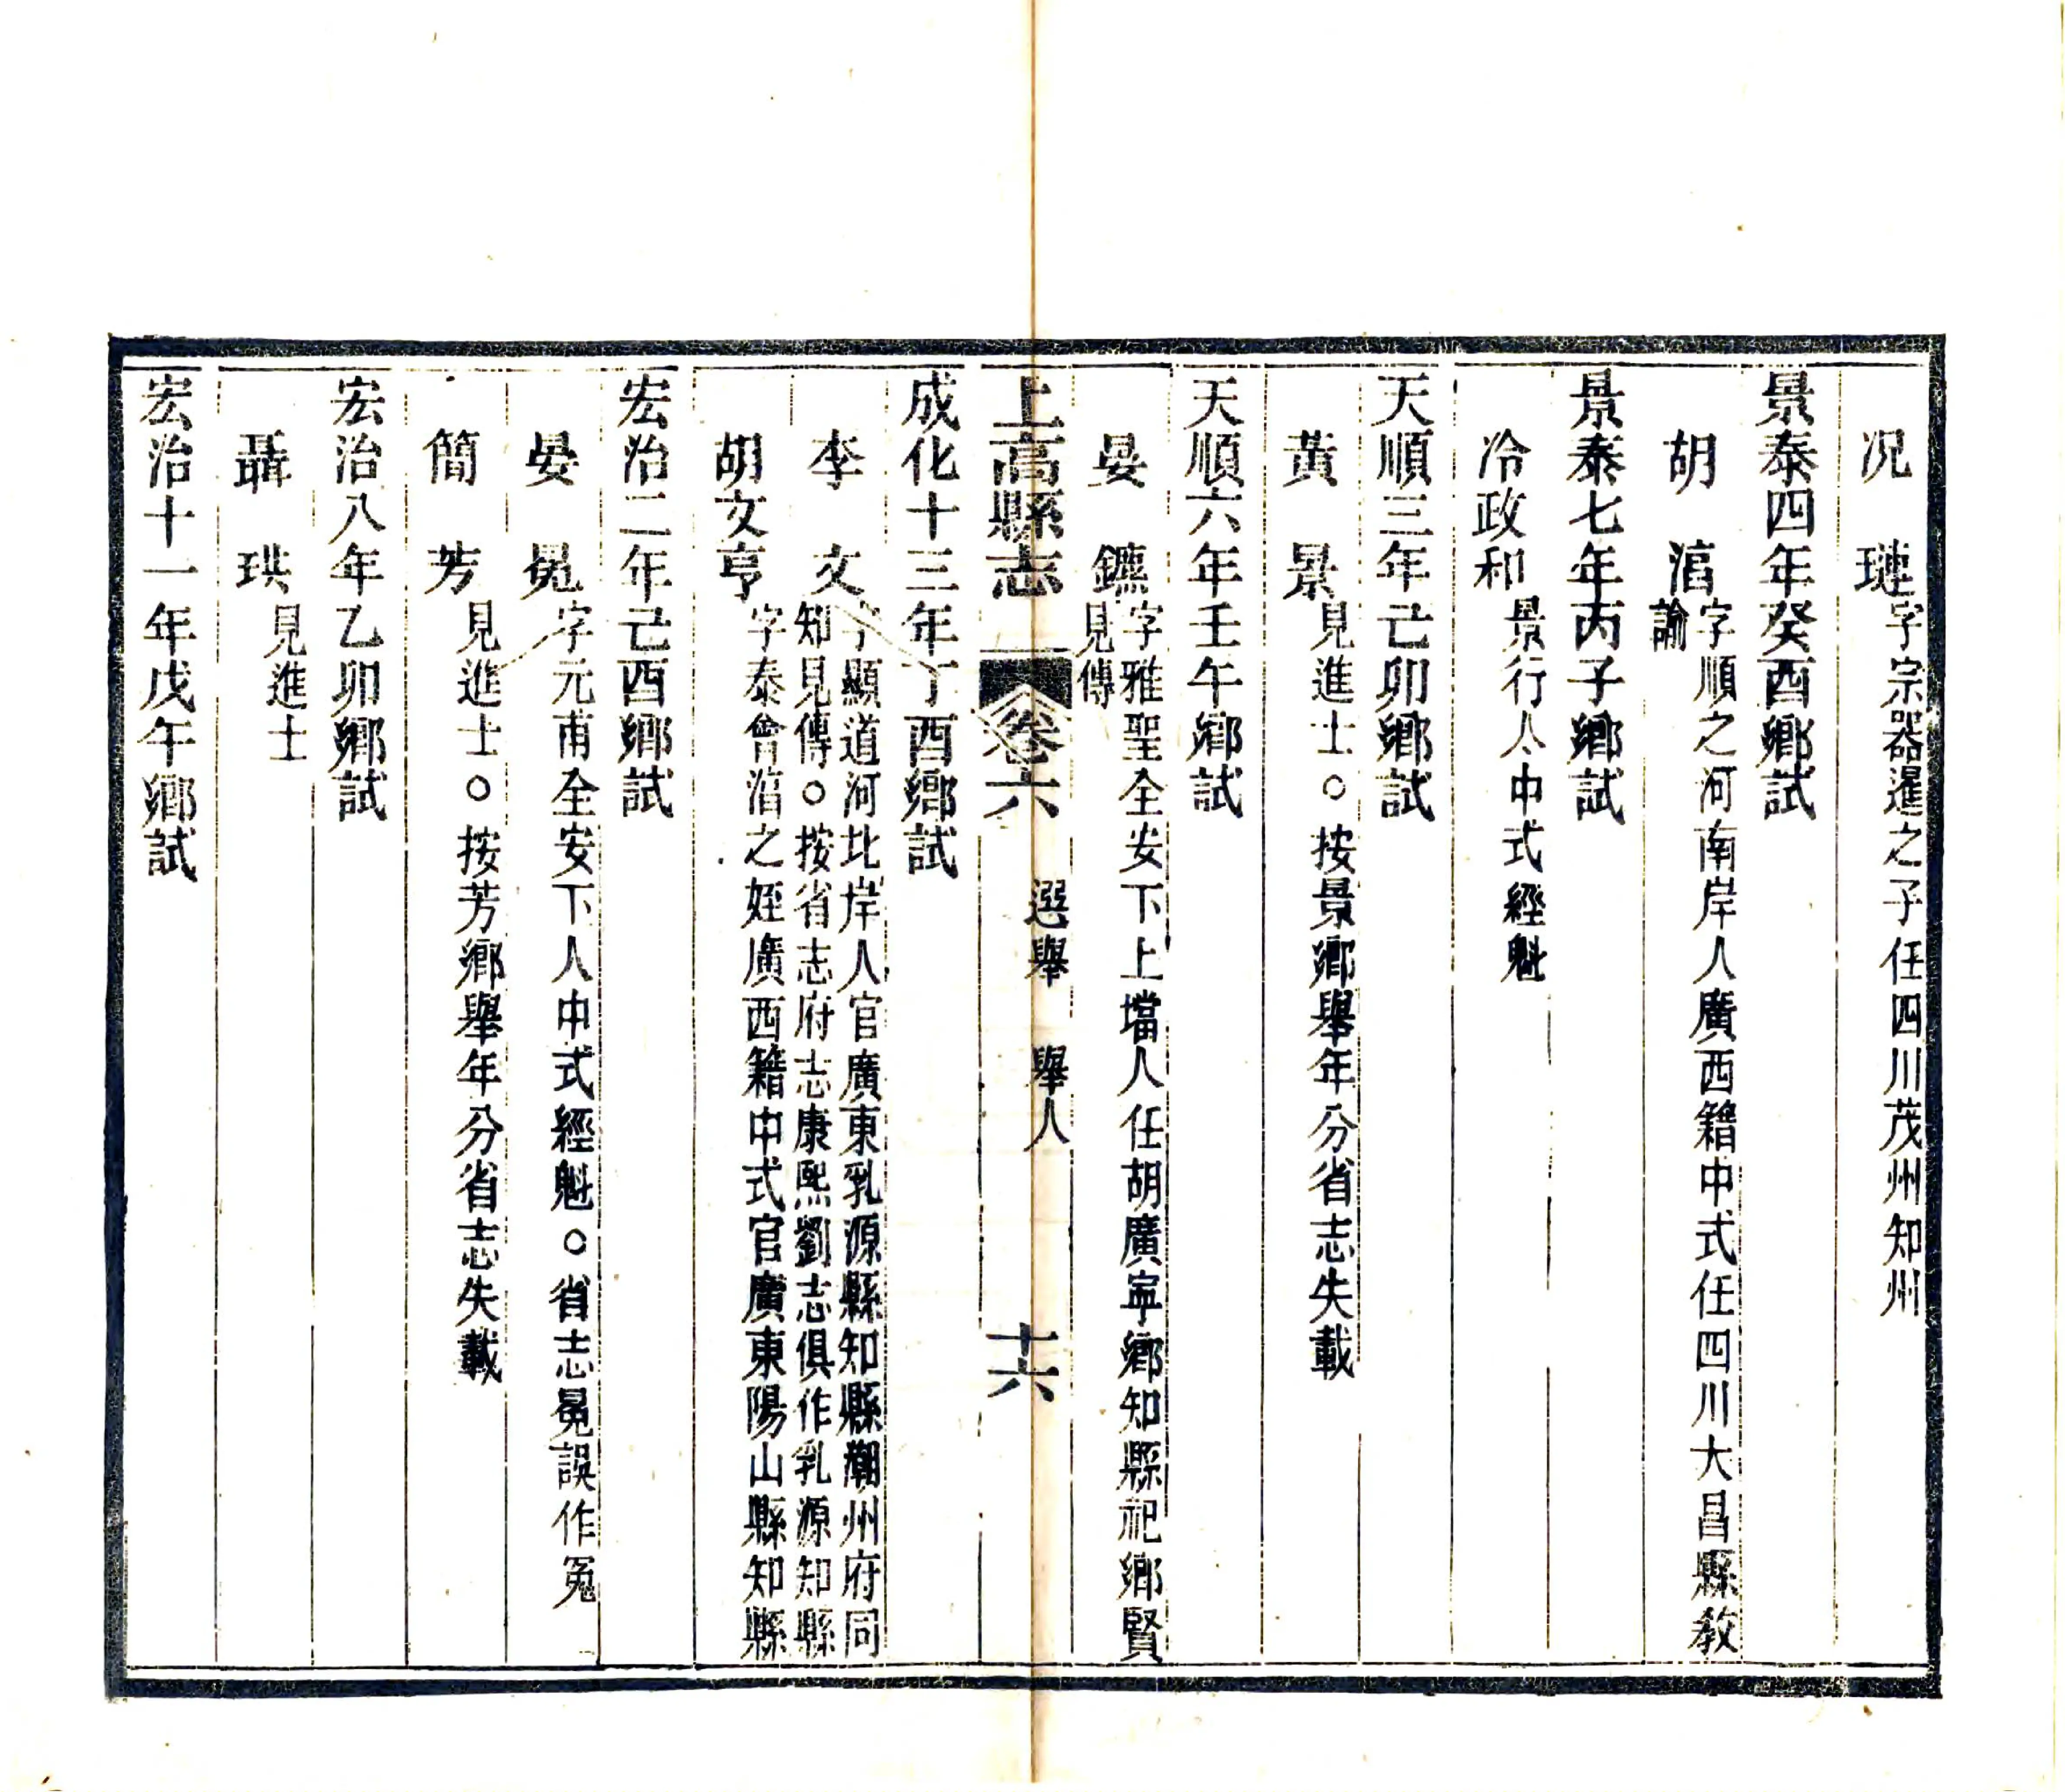 況璉字宗器暹之子任四川茂州知州
景泰四年癸酉鄉試
胡湻字順之河南岸人廣西籍中式任四川大昌縣敎
諭
景泰七年丙子鄉試
冷政和景行人中式經魁
天順三年己卯鄉試
黃景見進士○按景鄉舉年分省志失載
天順六年壬午鄉試
晏鑣字雅聖全安下上壋人任胡廣寧鄉知縣祀鄉賢
見傳
上高縣志 卷六 選舉 舉人 十六
成化十三年丁酉鄉試
李文字顯道河北岸人官廣東乳源縣知縣潮州府同
知見傳○按省志府志康熙劉志俱作乳源知縣
胡文亨字泰會湻之姪廣西籍中式官廣東陽山縣知縣
宏治二年己酉鄉試
晏冕字元甫全安下人中式經魁○省志冕誤作冤
簡芳見進士○按芳鄉舉年分省志失載
宏治八年乙卯鄉試
聶珙見進士
宏治十一年戊午鄉試